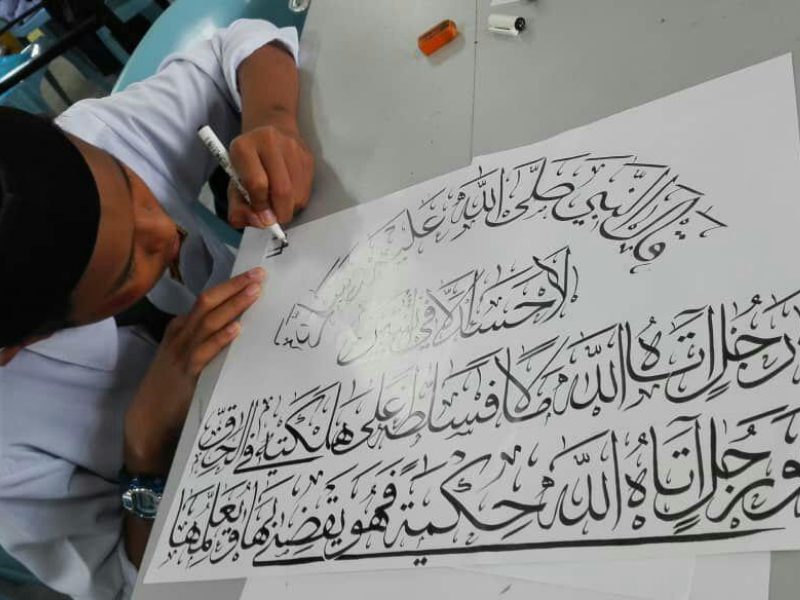 قَالَ النَّبِيُّ صَلَّى اللَّهُ عَلَيْهِ
لَا حَسَدَ إِلَّا فِي
رَجُلٍ آتَاهُ اللَّهُ مَالًا فَسَلَّطَهُ عَلَى هَلَكَتِهِ فِي الْحَقِّ
وَرَجُلٍ آتَاهُ اللَّهُ حِكْمَةً فَهُوَ يَقْضِي بِهَا وَيُعَلِّمُهَا